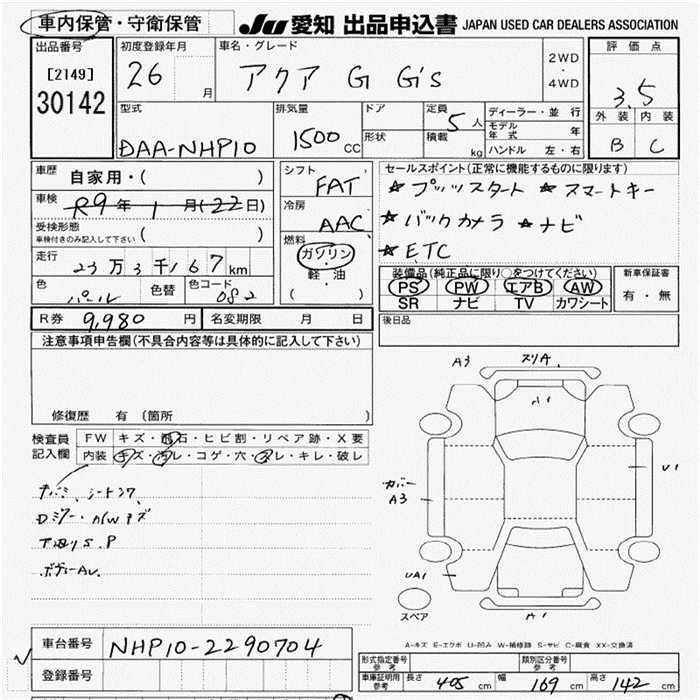 車内保管・守衛保管 JU 愛知 出品申込書 JAPAN USED CAR DEALERS ASSOCIATION
出品番号 初度登録年月 車名・グレード 2WD ・ 4WD 評価点
[2149] 26 月 アクア G G's 3.5
30142 外装 内装
型式 排気量 ドア 定員 5 人 ディーラー・並 行 B C
DAA-NHP10 1500 CC 形状 積載 kg モデル年式 年
ハンドル 左・右
車歴 自家用・( ) シフト FAT セールスポイント(正常に機能するものに限ります)
車検 R9年 1 月(22日) 冷房 AAC ★プッシュスタート ★スマートキー
受検形態 車検付きのみ記入して下さい ( ) 燃料 ガソリン ・ 軽・油 ( ) ★バックカメラ ★ナビ
走行 23万3千167km ★ETC
色 パール 色替 色コード 082 装備品(純正品に限り○をつけてください) 新車保証書
PS PW エアB AW 有・無
SR ナビ TV カワシート
R券 9,980 円 名変期限 月 日 後日品
注意事項申告欄(不具合内容等は具体的に記入して下さい)
修復歴 有 (箇所 )
A3 スリA
A1
カバー A3
U1
UA1
スペア
A1
検査員記入欄 FW キズ・飛石・ヒビ割・リペア跡・X要
内装 キズ・汚レ・コゲ・穴・スレ・キレ・破レ
下回りS.P
ボディーAU.
A-キズ E-エクボ U-凹み W-補修跡 S-サビ C-腐食 XX-交換済
車台番号 NHP10-2290704 形式指定番号 参考 類別区分番号 参考
登録番号 車庫証明用 参考 長さ 405 cm 幅 169 cm 高さ 142 cm